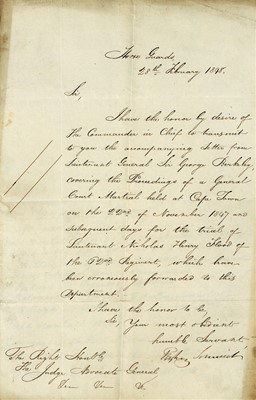 Horse Guards,
28th February 1848.
Sir,
I have the honor by desire of
The Commander in Chief to transmit
to you the accompanying letter from
Lieutenant General Sir George Berkeley,
covering the Proceedings of a General
Court Martial held at Cape Town
on the 22nd of November 1847 and
subsequent days for the trial of
Lieutenant Nicholas Henry
of the Regiment, which have
been erroneously forwarded to this
Department.
I have the honor to be,
Sir, Your most obedient
humble Servant
The Right Honble
The Judge Advocate General